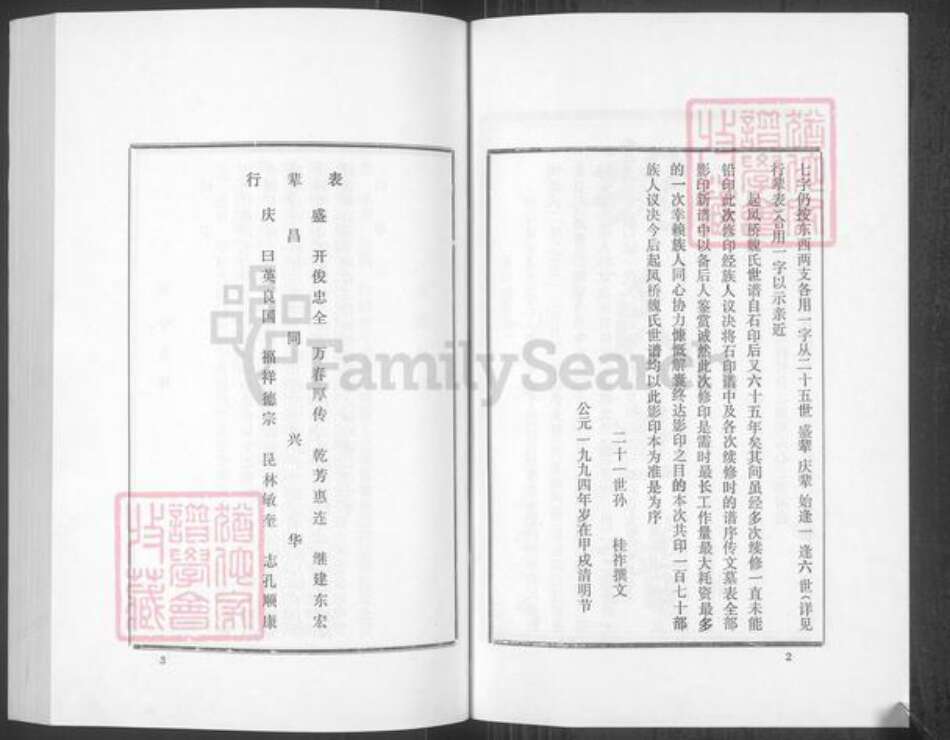 七字仍按东西两支各用一字从二十五世 盛辈 庆辈 始逢一 逢六 世(详见
行辈表)合用一字以示亲近
起凤桥魏氏世谱自石印后又六十五年矣其间虽经多次续修一直未能
铅印此次修印经族人议决将石印谱中及各次续修时的谱序传文墓表全部
影印新谱中以备后人鉴赏诚然此次修印是需时最长工作量最大耗资最多
的一次幸赖族人同心协力慷慨解囊终达影印之目的本次共印一百七十部
族人议决今后起凤桥魏氏世谱均以此影印本为准是为序
二十一世孙 桂祚撰文
公元一九九四年岁在甲戌清明节
2
行辈表
盛 开俊忠全 万春厚传 乾芳惠连 继建东宏
昌 同 兴 华
庆 曰英良国 福祥德宗 昆林敏奎 志孔顺康
3
FamilySearch